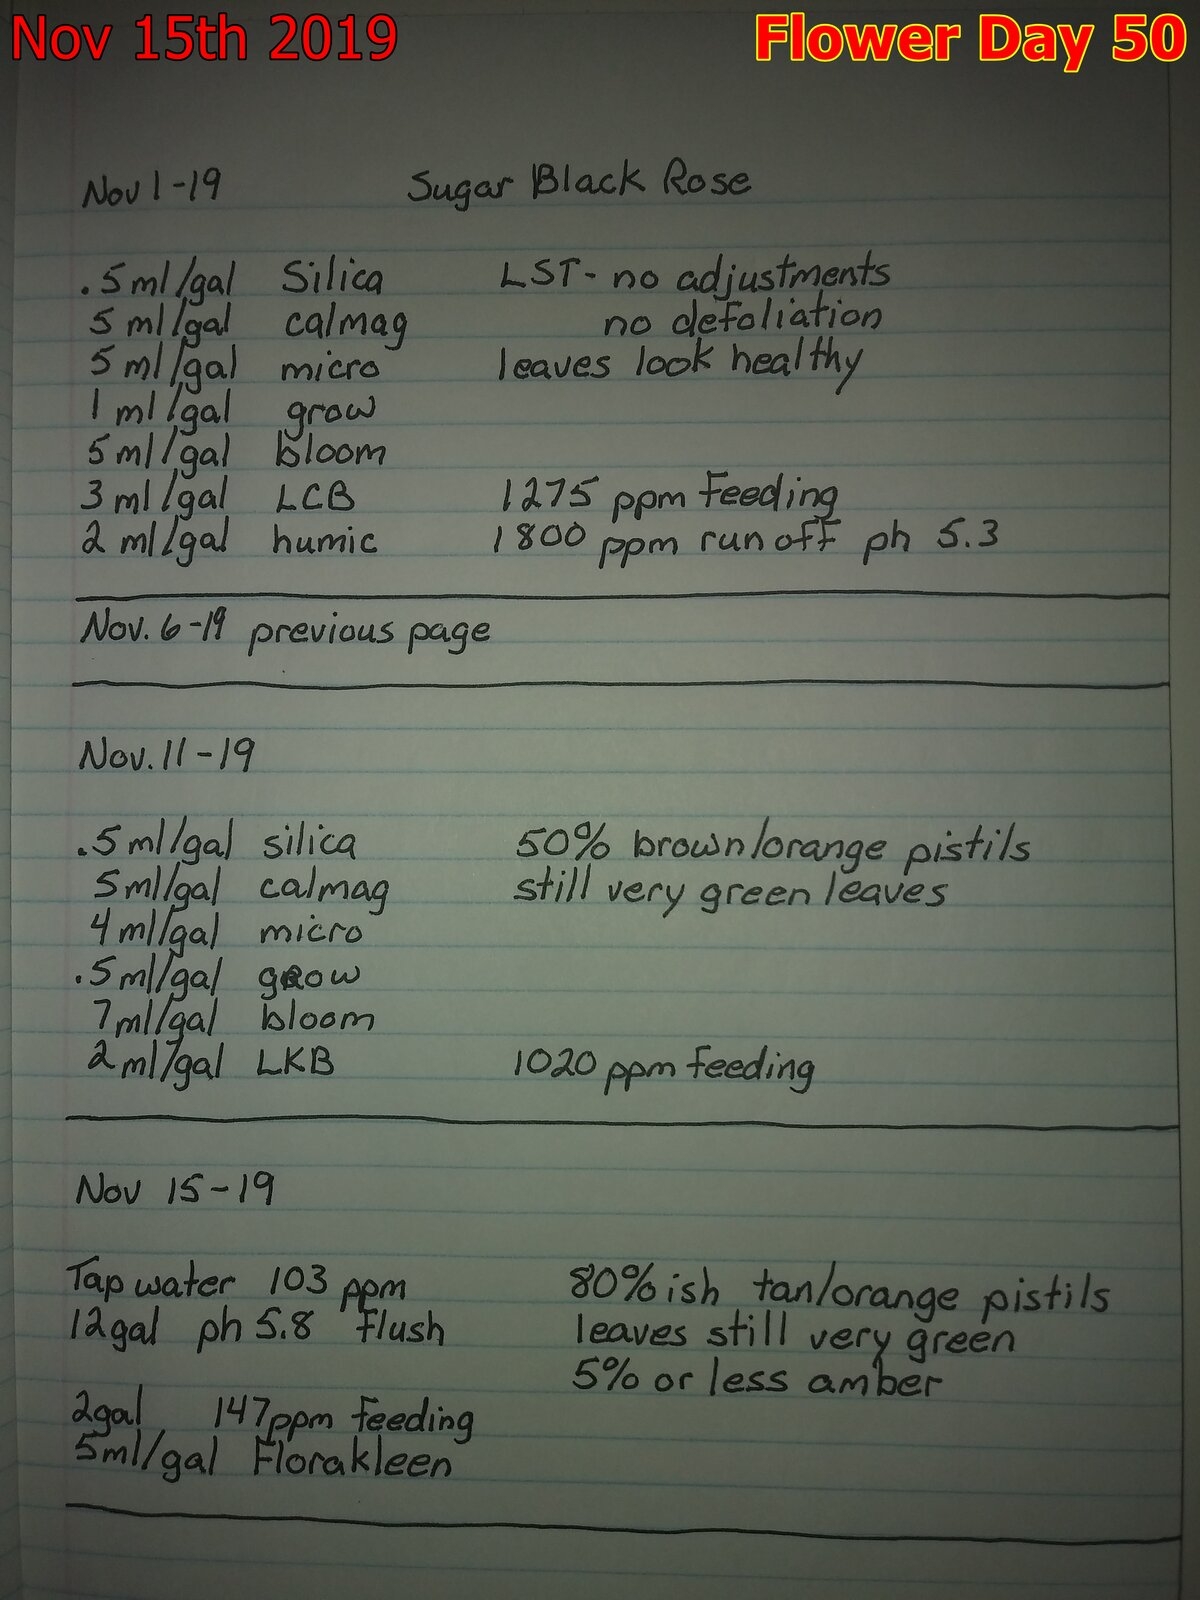 Nov 15th 2019 Flower Day 50
Nov 1-19 Sugar Black Rose
.5ml/gal Silica LST- no adjustments
5 ml/gal calmag no defoliation
5 ml/gal micro leaves look healthy
1 ml/gal grow
5ml/gal bloom
3 ml/gal LCB 1275 ppm feeding
2 ml/gal humic 1800 ppm run off ph 5.3
Nov. 6-19 previous page
Nov. 11-19
.5ml/gal silica 50% brown/orange pistils
5ml/gal calmag still very green leaves
4ml/gal micro
.5ml/gal grow
7ml/gal bloom
2ml/gal LKB 1020 ppm feeding
Nov 15-19
Tap water 103 ppm 80%ish tan/orange pistils
12gal ph 5.8 flush leaves still very green
5% or less amber
2gal 147ppm feeding
5ml/gal Florakleen